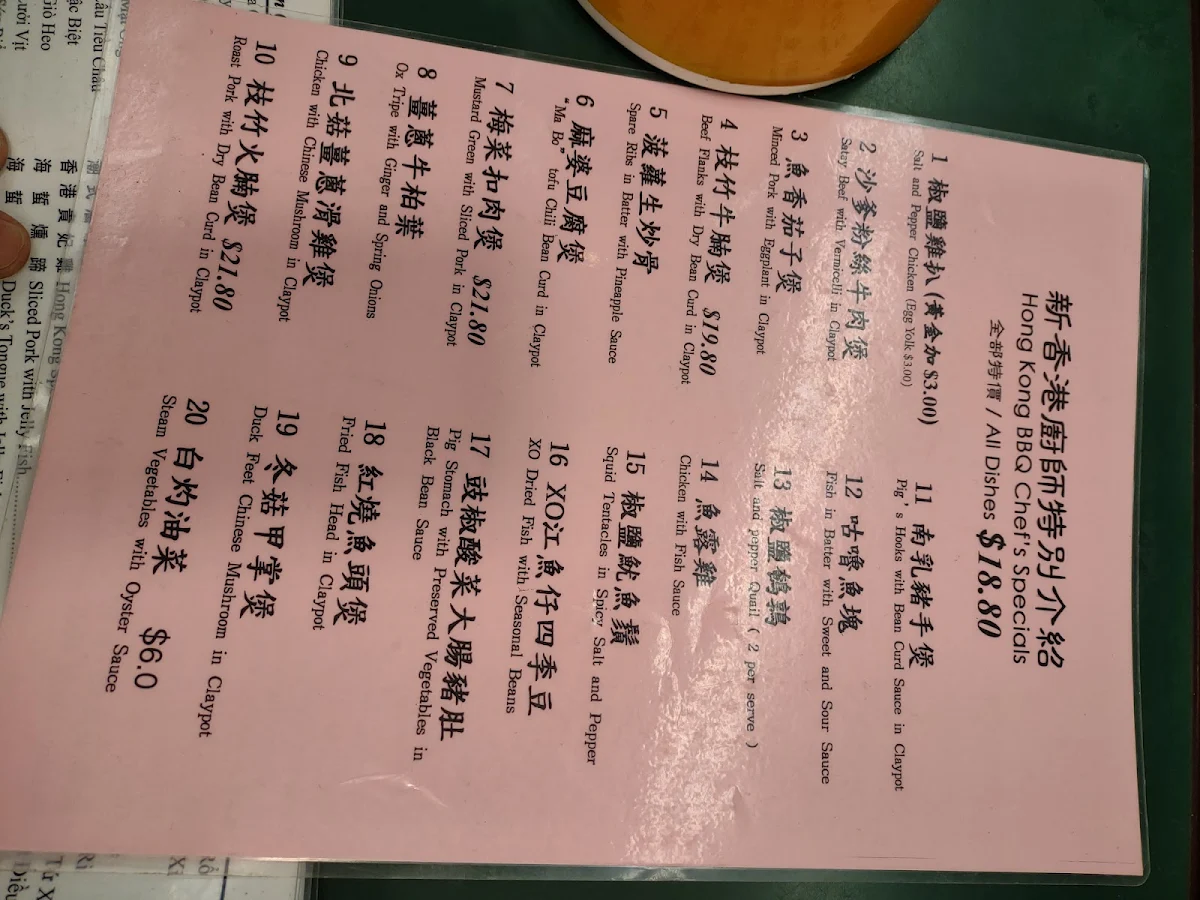 新香港廚師特別介紹
Hong Kong BBQ Chef's Specials
全部特價 / All Dishes $18.80
1 椒鹽雞扒 (黃金加 $3.00)
Salt and Pepper Chicken (Egg Yolk $3.00)
2 沙爹粉絲牛肉煲
Satay Beef with Vermicelli in Claypot
3 魚香茄子煲
Minced Pork with Eggplant in Claypot
4 枝竹牛腩煲 $19.80
Beef Flanks with Dry Bean Curd in Claypot
5 菠蘿生炒骨
Spare Ribs in Batter with Pineapple Sauce
6 麻婆豆腐煲
"Ma Bo" tofu Chili Bean Curd in Claypot
7 梅菜扣肉煲 $21.80
Mustard Green with Sliced Pork in Claypot
8 薑蔥牛柏葉
Ox Tripe with Ginger and Spring Onions
9 北菇薑蔥滑雞煲
Chicken with Chinese Mushroom in Claypot
10 枝竹火腩煲 $21.80
Roast Pork with Dry Bean Curd in Claypot
11 南乳豬手煲
Pig's Hooks with Bean Curd Sauce in Claypot
12 咕嚕魚塊
Fish in Batter with Sweet and Sour Sauce
13 椒鹽鵪鶉
Salt and pepper Quail ( 2 per serve )
14 魚露雞
Chicken with Fish Sauce
15 椒鹽魷魚鬚
Squid Tentacles in Spicy Salt and Pepper
16 XO江魚仔四季豆
XO Dried Fish with Seasonal Beans
17 豉椒酸菜大腸豬肚
Pig Stomach with Preserved Vegetables in
Black Bean Sauce
18 紅燒魚頭煲
Fried Fish Head in Claypot
19 冬菇甲掌煲
Duck Feet Chinese Mushroom in Claypot
20 白灼油菜 $6.0
Steam Vegetables with Oyster Sauce
Tiêu Châu
Biệt
Giò Heo
Lưỡi Vịt
香港貴妃雞 Hong Kong
海蜇燻蹄 Sliced Pork with Jelly Fish
海蜇
Duck's Tongue with Jelly